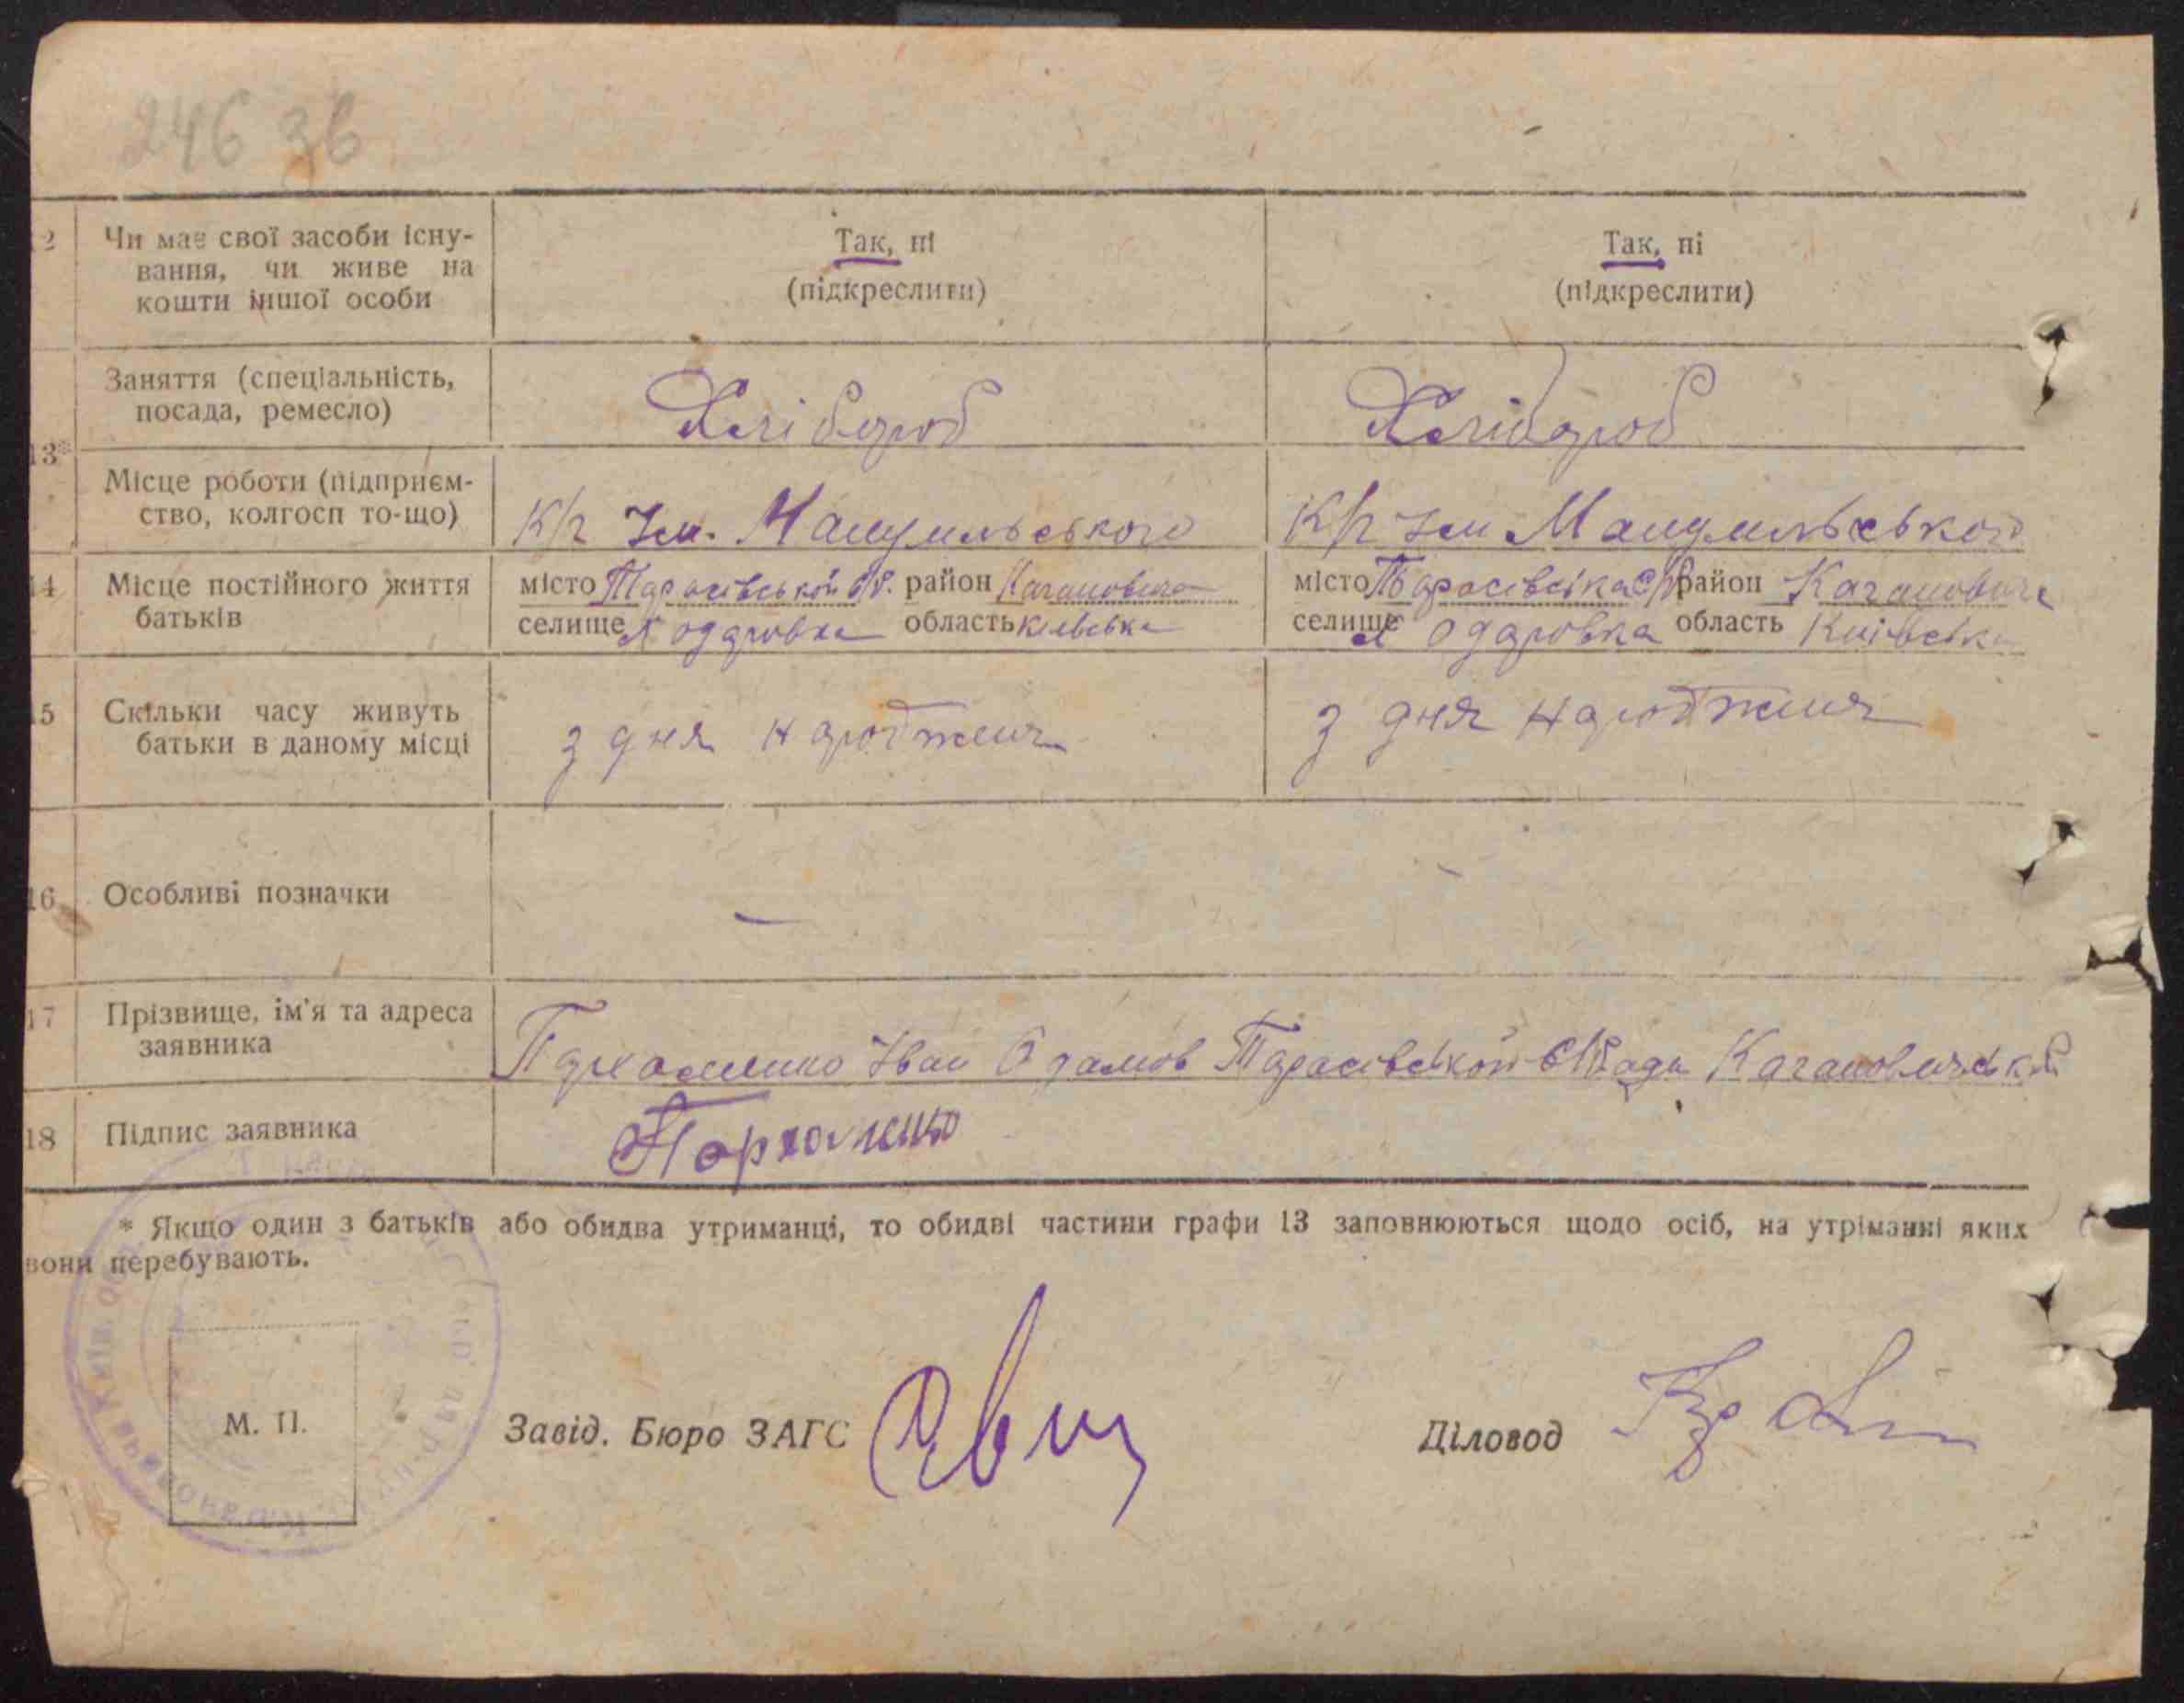 246 зв
2 Чи має свої засоби існу-
вання, чи живе на
кошти іншої особи
Так, ні
(підкреслити)
Так, ні
(підкреслити)
Заняття (спеціальність,
посада, ремесло)
Хлібороб
Хлібороб
13*
Місце роботи (підприєм-
ство, колгосп то-що)
К/г Ім. Мануильського
К/г Ім Мануильського
14 Місце постійного життя
батьків
місто Тарасівской с/р. район Кагановича
селище х Одаровка область київська
місто Тарасівська с/р район Кагановича
селище х Одаровка область Київська
15 Скільки часу живуть
батьки в даному місці
з дня народження
з дня народження
16 Особливі позначки
—
17 Прізвище, ім'я та адреса
заявника
Пархоменко Іван Тарасівской С/Ради Кагановичськ
18 Підпис заявника
Пархоменко
* Якщо один з батьків або обидва утриманці, то обидві частини графи 13 заповнюються щодо осіб, на утріманні яких
вони перебувають.
М. П.
Завід. Бюро ЗАГС
Діловод